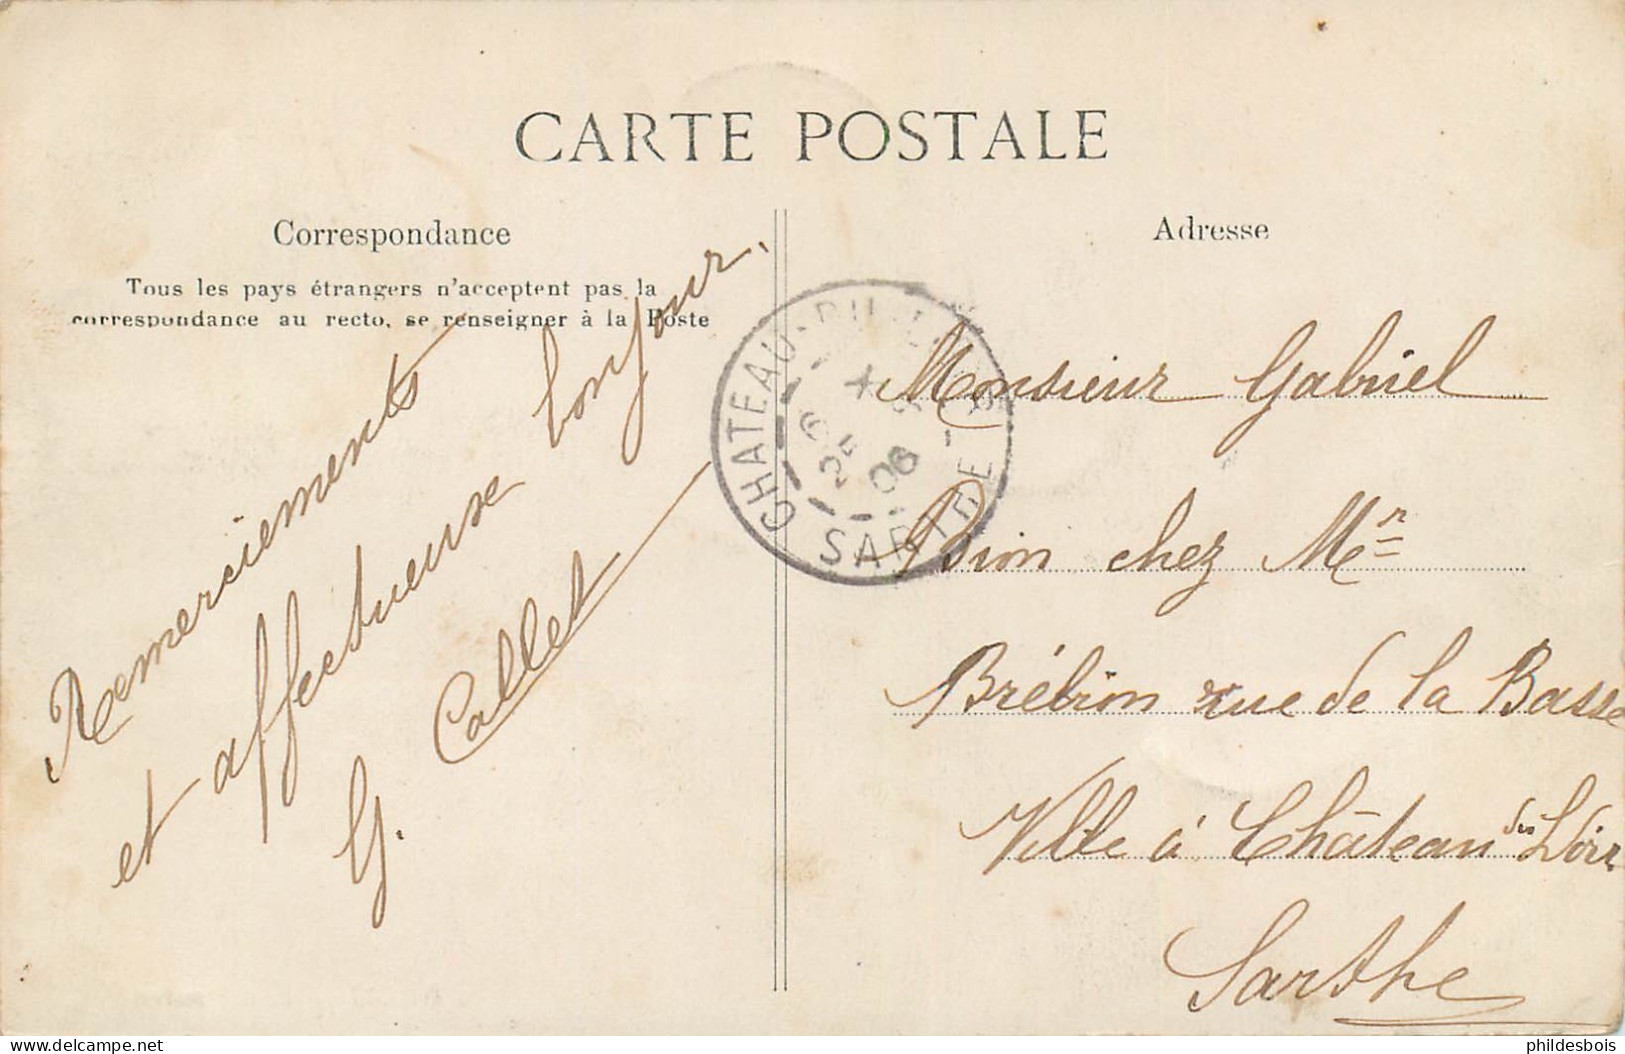 CARTE POSTALE
Correspondance
Tous les pays étrangers n'acceptent pas la
correspondance au recto, se renseigner à la Poste
Remerciements
et affectueuse bonjour.
G. Callet
Adresse
CHATEAU-DU-LOIR
6 25 9 06
SARTHE
Monsieur Gabriel
Dion chez Mr
Brébion rue de la Basse
Ville à Château du Loir
Sarthe
phildesbois